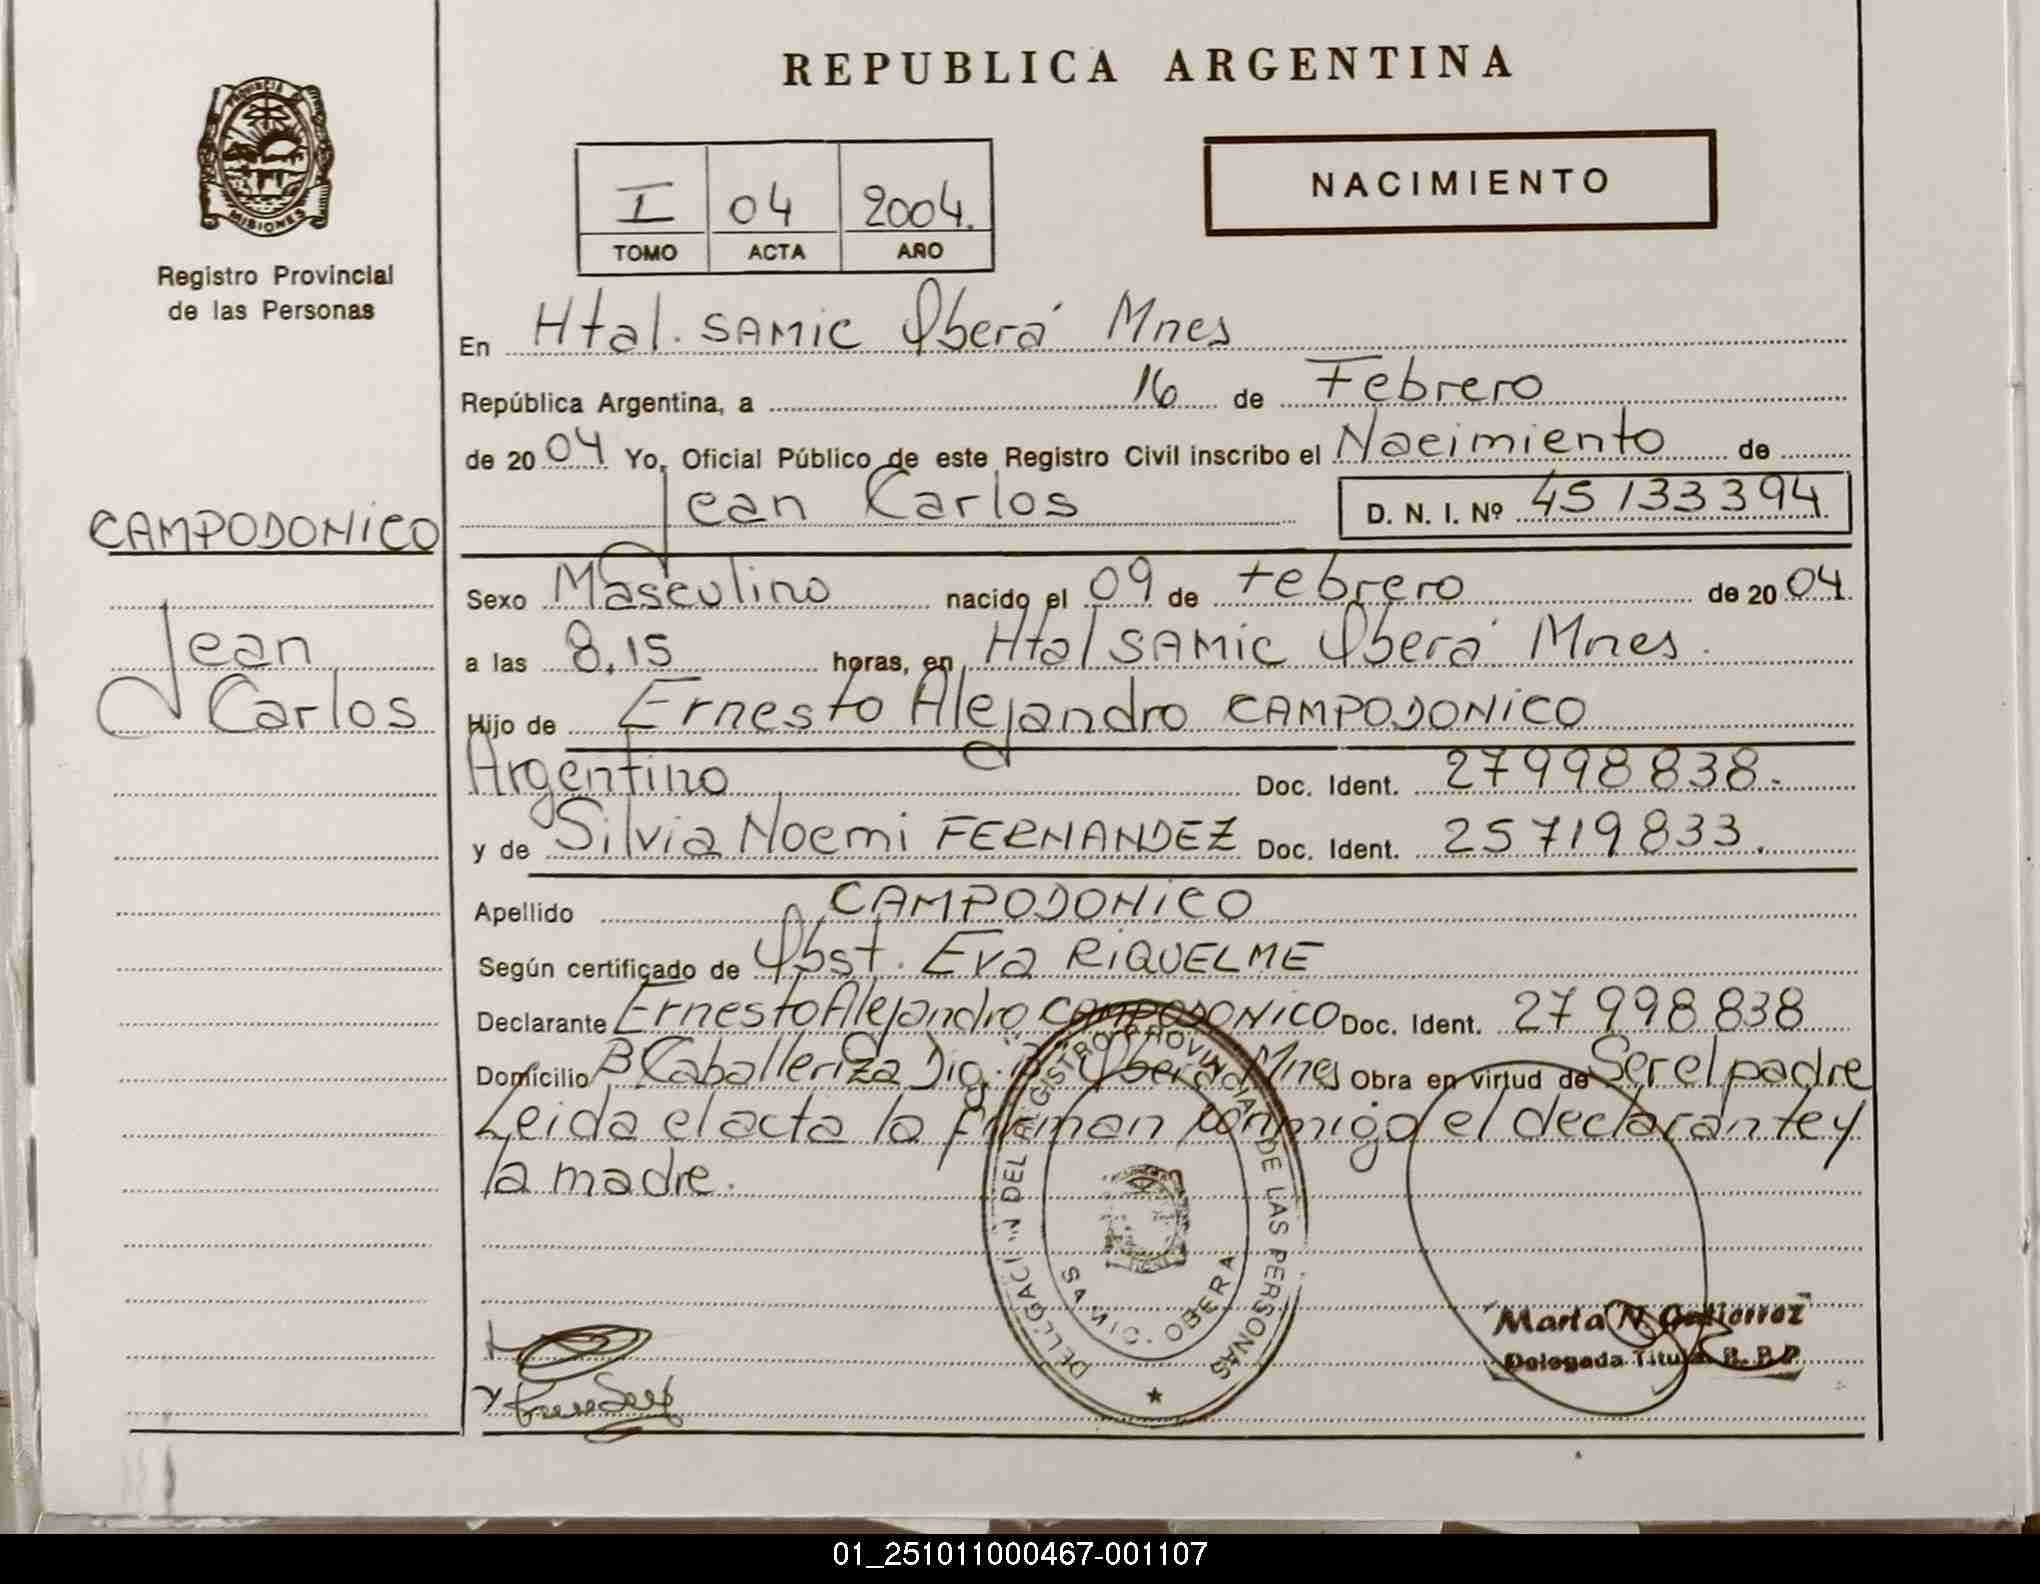 REPUBLICA ARGENTINA
PROVINCIA DE
MISIONES
Registro Provincial
de las Personas
I 04 2004.
TOMO ACTA AÑO
NACIMIENTO
En Htal. SAMIC Oberá Mnes
República Argentina, a 16 de Febrero
de 2004 Yo, Oficial Público de este Registro Civil inscribo el Nacimiento de
Jean Carlos D. N. I. Nº 45133394
CAMPODONICO
Jean
Carlos
Sexo Masculino nacido el 09 de febrero de 2004.
a las 8,15 horas, en Htal SAMIC Oberá Mnes.
Hijo de Ernesto Alejandro CAMPODONICO
Argentino Doc. Ident. 27998838.
y de Silvia Noemi FERNANDEZ Doc. Ident. 25719833.
Apellido CAMPODONICO
Según certificado de Obst. Eva RIQUELME
Declarante Ernesto Alejandro CAMPODONICO Doc. Ident. 27998838
Domicilio B Caballeriza Oberá Mnes Obra en virtud de Ser el padre
Leida el acta la firman conmigo el declarante y
la madre.
DELEGACION DEL REGISTRO PROVINCIAL DE LAS PERSONAS
SAMIC - OBERA
Marta N. Gutierrez
Delegada Titular R. P. P.
01_251011000467-001107